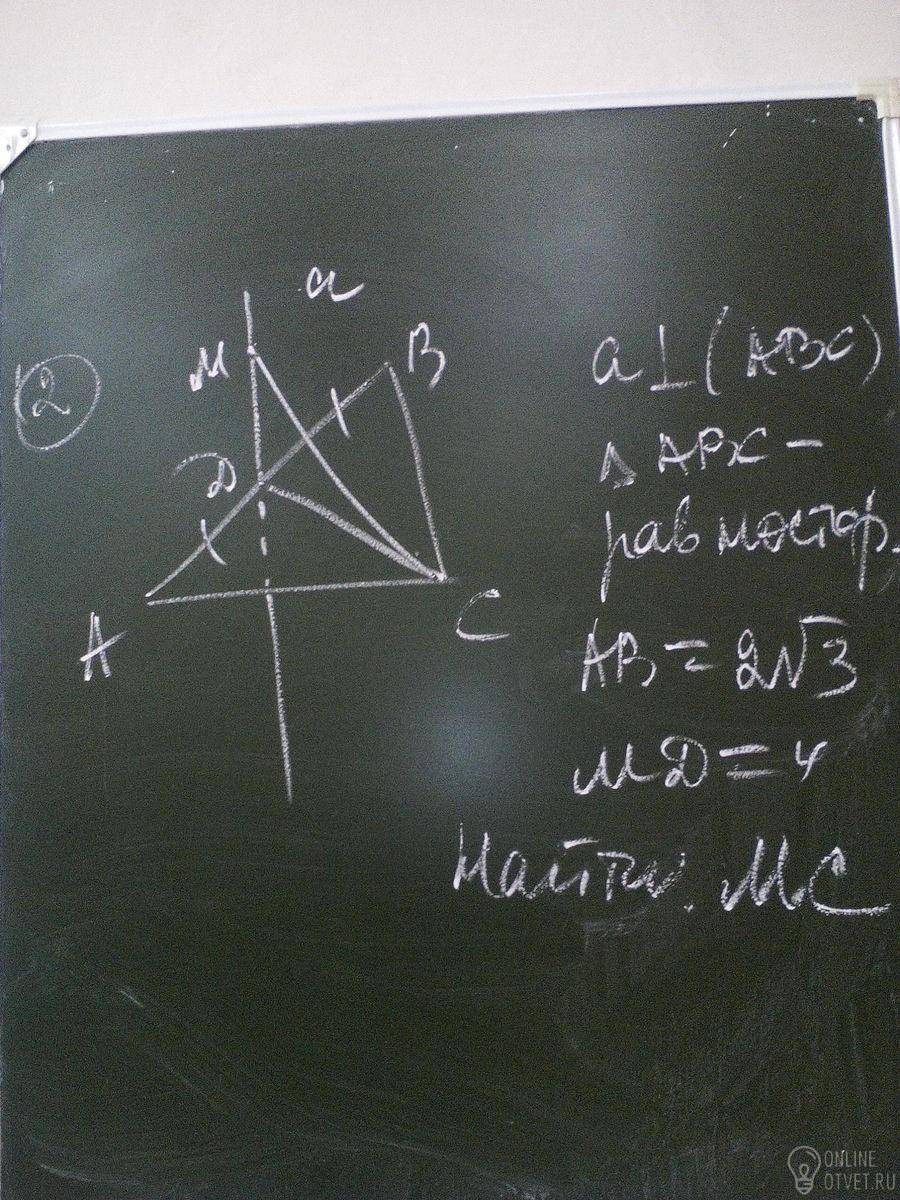 2
a
M
B
D
A
C
a ⊥ (ABC)
Δ ABC –
равностор.
AB = 2√3
MD = 4
Найти. MC
ONLINE
OTVET.RU